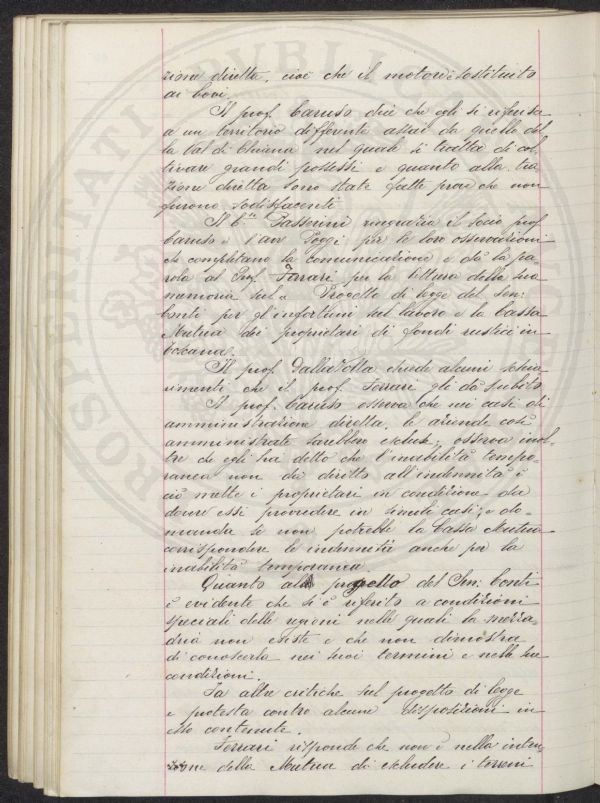 zione diretta, cioè che il motore è sostituito
ai bovi.
Il prof. Caruso dice che egli si riferisce
a un territorio differente assai da quello del
la Val di Chiana nel quale si tratta di col
tivare grandi possessi e quanto alla tra
zione diretta sono state fatte prove che non
furono sodisfacenti.
Il C.te Passerini ringrazia il socio prof.
Caruso e l'avv. Poggi per le loro osservazioni
che completano la comunicazione e dà la pa
rola al Prof. Ferrari per la lettura della sua
memoria sul « Progetto di legge del Sen:
Conti per gl'infortuni sul lavoro e la Cassa
Mutua dei proprietari di fondi rustici in
Toscana.
Il prof. Dalla Volta chiede alcuni schia
rimenti che il prof. Ferrari gli dà subito.
Il prof. Caruso osserva che nei casi di
amministrazione diretta, le aziende così
amministrate sarebbero escluse; osserva inol
tre che egli ha detto che l'inabilità tempo-
ranea non dà diritto all'indennità e
ciò mette i proprietari in condizione da
dovere essi provvedere in simili casi; e do-
manda se non potrebbe la Cassa Mutua
corrispondere le indennità anche per la
inabilità temporanea.
Quanto al progetto del Sen: Conti
è evidente che si è riferito a condizioni
speciali delle regioni nelle quali la mezza-
dria non esiste e che non dimostra
di conoscerla nei suoi termini e nelle sue
condizioni.
Fa altre critiche sul progetto di legge
e protesta contro alcune disposizioni in
esso contenute.
Ferrari risponde che non è nella inten
zione della Mutua di escludere i terreni